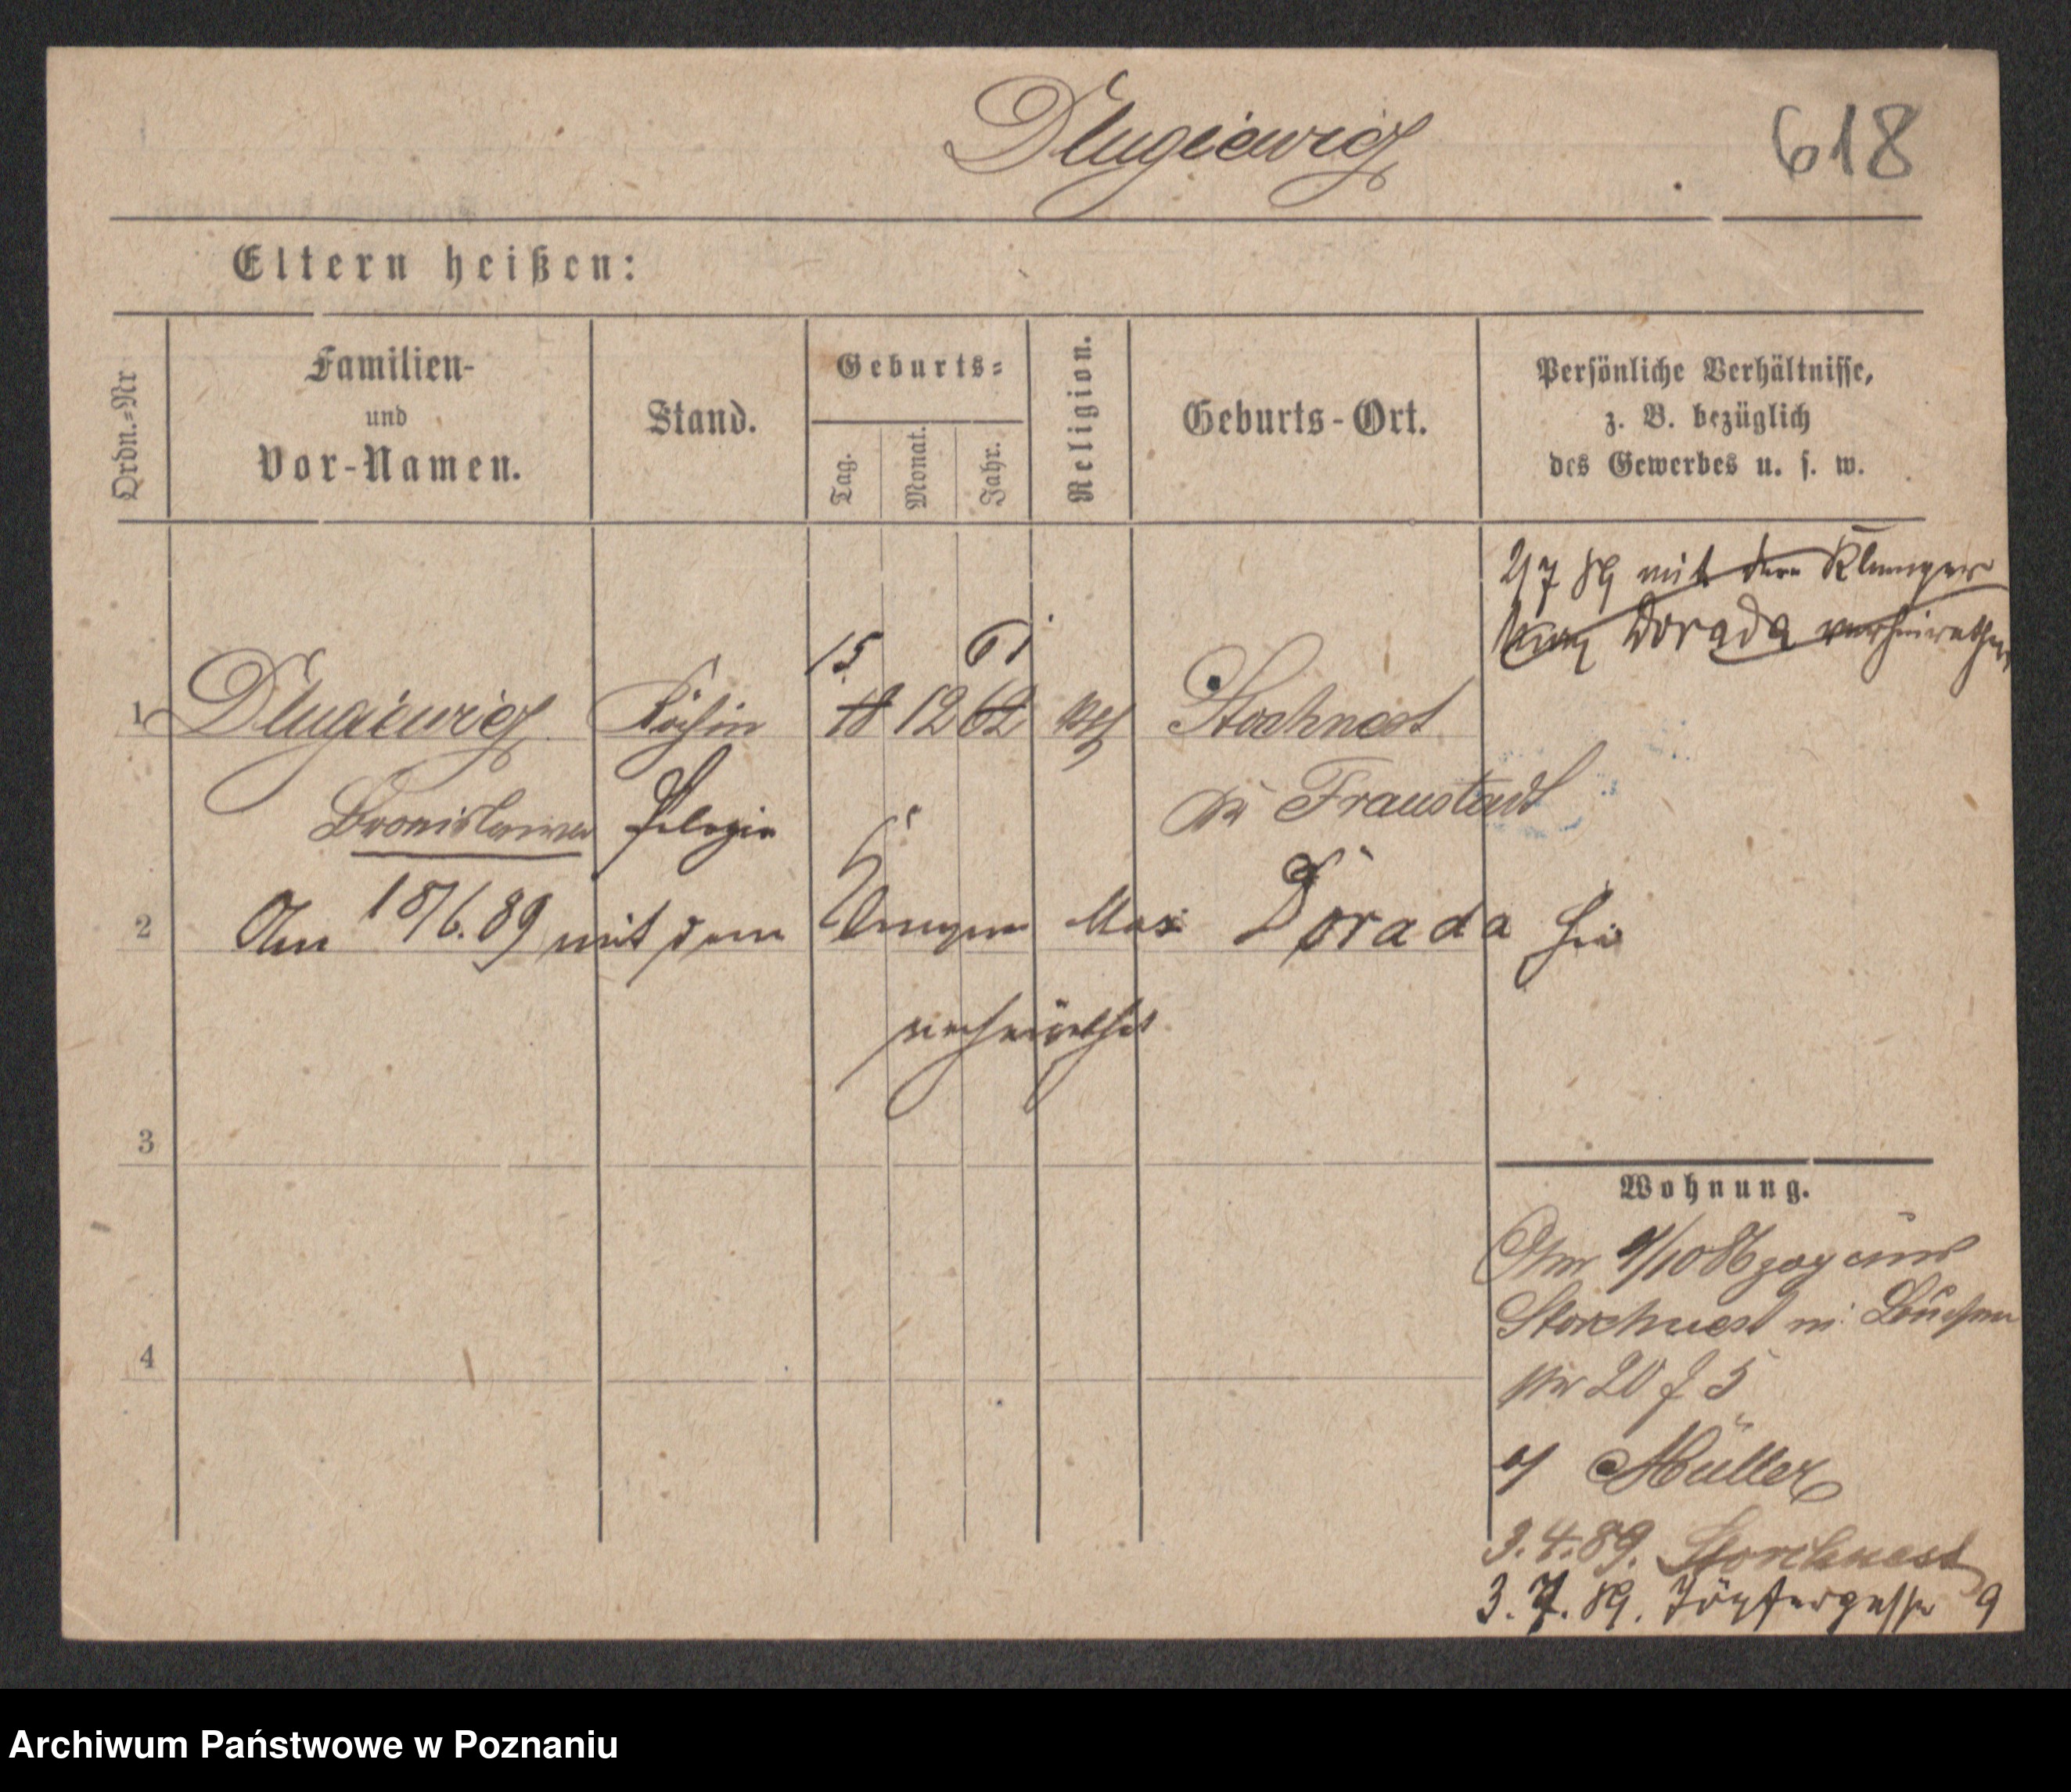 Dlugiewicz
618
Eltern heißen:
Ordn.=Nr
Familien-
und
Vor-Namen.
Stand.
Geburts=
Tag.
Monat.
Jahr.
Religion.
Geburts-Ort.
Persönliche Verhältnisse,
z. B. bezüglich
des Gewerbes u. s. w.
2/7 89 mit dem Klempner
Dorada verheirathet
15 61
1 Dlugiewicz Köchin 18 12 62 Storchnest
Bronislawa Pelagia Fraustadt
2 Am 18/6.89 mit dem Max Dorada hier
verheirathet
3
4
Wohnung.
Am 1/10 86 zog aus
Storchnest n.
20 f 5
b/ Müller
3.4.89. Storchnest
3.7.89. Töpfergasse 9
Archiwum Państwowe w Poznaniu